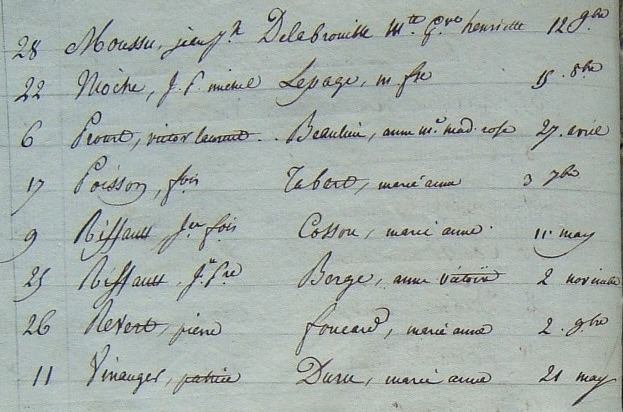 28 Moussu, jean Bte Delabrouille Mte Gve henriette 12 9bre
22 Nioche, J. P. michel Lepage, m fse 15. 8bre
6 Prout, victor laurent . . Beaulieu, anne me mad. rose 27. avril
17 Poisson, fois Tabert, marie anne 3 7bre
9 Riffault Jn fois Cosson, marie anne. 11. may
25 Riffault, Jn Pre Berge, anne victoire 2 novembre
26 Revert, pierre foucard, marie anne 2. 9bre
11 Vinauger, patrice Duru, marie anne 21 may